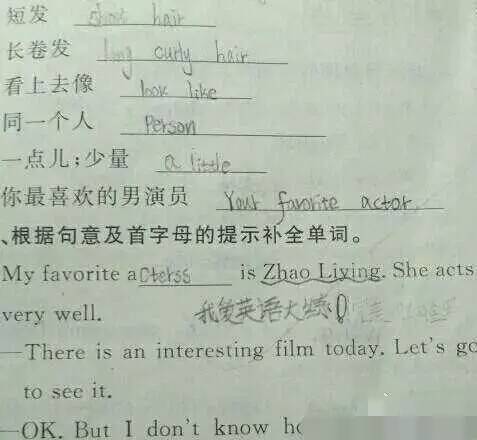 短发 short hair
长卷发 long curly hair
看上去像 look like
同一个人 Person
一点儿;少量 a little
你最喜欢的男演员 Your favorite actor.
、根据句意及首字母的提示补全单词。
My favorite acterss is Zhao Liying. She acts
very well. 我爱英语大
—There is an interesting film today. Let's go
to see it.
—OK. But I don't know